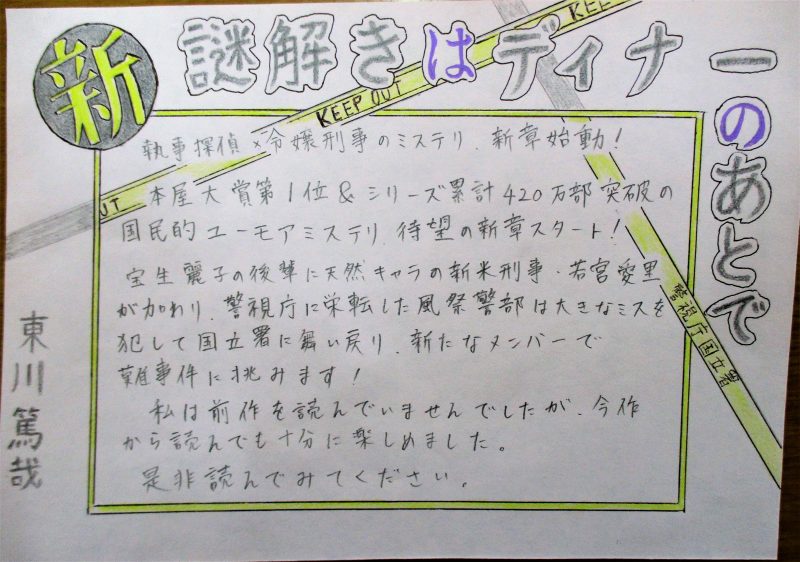 新 謎解きはディナーのあとで
KEEP OUT
KEE
UT
執事探偵×令嬢刑事のミステリ、新章始動!
本屋大賞第1位&シリーズ累計420万部突破の
国民的ユーモアミステリ、待望の新章スタート!
宝生麗子の後輩に天然キャラの新米刑事・若宮愛里
が加わり、警視庁に栄転した風祭警部は大きなミスを
犯して国立署に舞い戻り、新たなメンバーで
難事件に挑みます!
私は前作を読んでいませんでしたが、今作
から読んでも十分に楽しめました。
是非読んでみてください。
警視庁国立署
東川篤哉